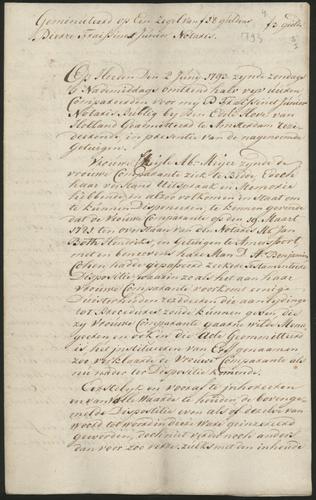 Geminuteerd op Een Zegel van f 38 guldens
f 3 guld.
Bierre Fraissinet Junior Notaris.
1793
Op Heeden Den 2 Juny 1793 zynde zondags
's Nademiddags omtrend half vyf uuren
Compareerden voor my P. Fraissinet Junior
Notaris Publicq by den Edele Hove van
Holland Geadmitteerd te Amsterdam resi-
deerende, in presentie van de nagenoemde
Getuigen.
Vrouwe Ab. Meijer zynde de
vrouwe Comparante ziek te Bedde Edoch
haar verstand Uitspraak en Memorie
hebbende en alzoo volkomen in staat om
te kunnen Disponeeren, te kennen geevende
dat de Vrouwe Comparante op den 19 Maart
1781 ten overstaan van den Notaris Mr. Jan
Both Hendriks, en Getuigen te Amersfoort
met en beneevens haare Man D. H. Benjamin
Cohen hadde gepasseerd zeekere Testamentaire
Dispositie waarin zoo als het aan Haar
Vrouwe Comparante voorkomt eenige
Duisterheeden resideeren die aanleydinge
tot Procedures zoude kunnen geeven, die
zy Vrouwe Comparante gaarne wilde
en ook in die
is het institueeren van Erfgenaamen
zoo verklaarde de Vrouwe Comparante als
nu nader tot Dispositie komende.
Eerstelyk en vooraf te inhereeren
en van Volle Waarde te houden, de bovenge-
melde Dispositie even als of dezelve van
woord tot woord in deeze Ware geinsereerd
geworden, doch niet verder noch anders
dan voor zoo verre zulks met den inhoude